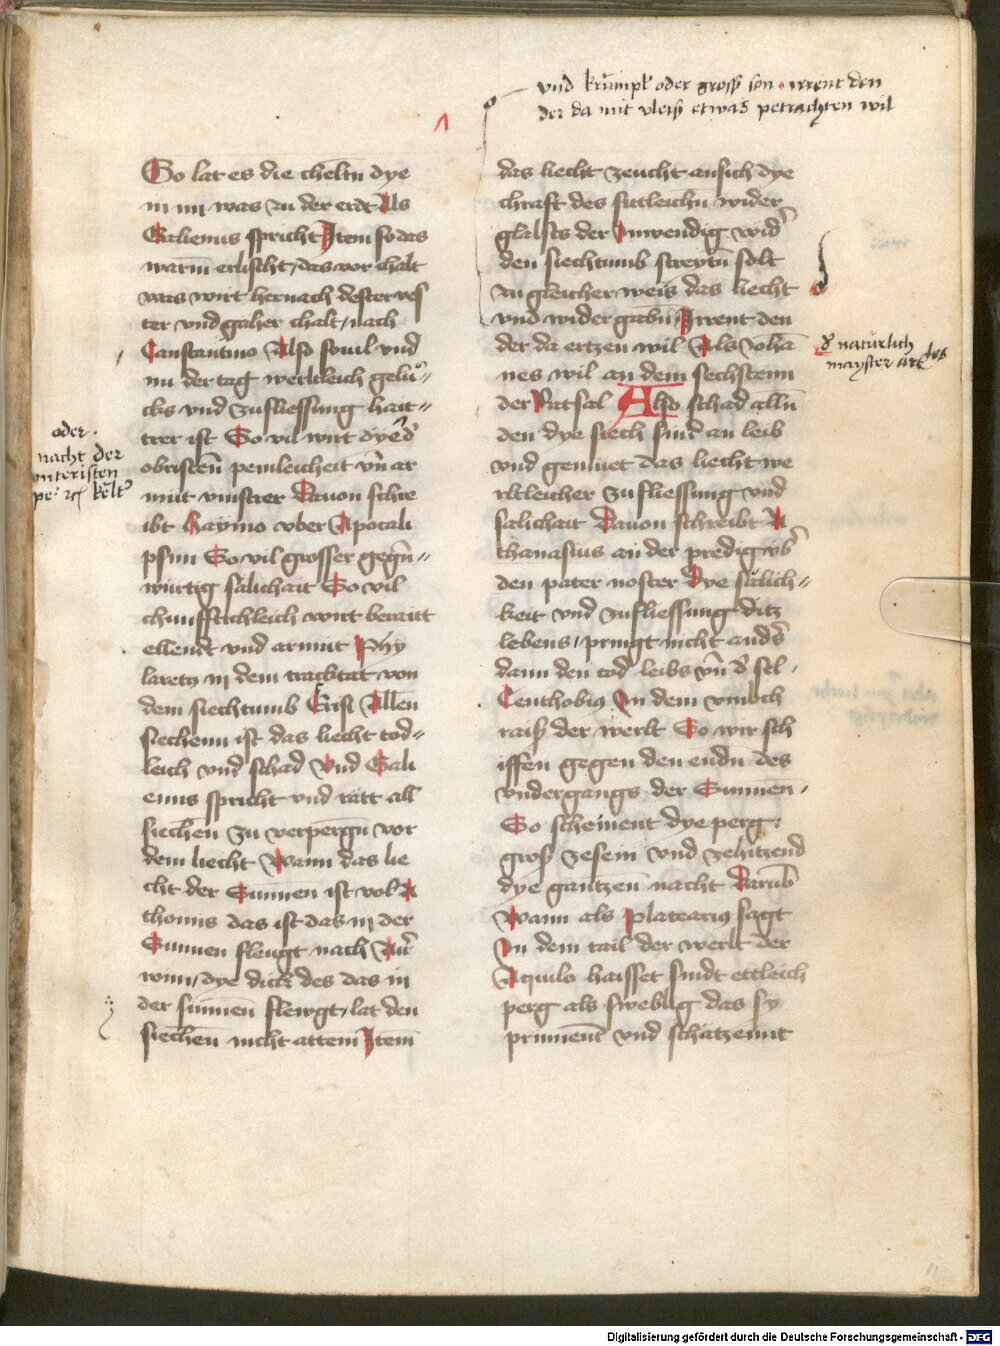 vnd krumpt oder gross son irrent den
der da mit vleis etwas petrachten wil
So lat es die cheltn dye
in im was zu der erdt Als
Galienus spricht Item so das
warm erlischt, das vor chalt
was wirt hernach dester ves
ter vnd gaher chalt, nach
Constantino Also souil vnd
nu der tag werltleich gelu-
cks vnd zufliessung hait-
trer ist So vil wirt dye d
obristen peinleicheit vn ar
mut vinstrer Dauon schre
ibt Haymo vber Apocali
psim So vil grosser gegn-
wurtig sälichait So vil
chunfftichleich wirt beraitt
ellendt vnd armut Phy
laretus in dem tracktat von
dem siechtumb Crist Allen
siechenn ist das liecht tod-
leich vnd schad Vnd Gali
enus spricht vnd ratt all
siechen zu verpergn vor
dem liecht Wann das lie
cht der Sunnen ist vol A
thomis das ist das in der
Sunnen fleugt, nach
wnn, dye dick des das in
der sunnen flewgt, lat den
siechen nicht attem Item
oder
nacht der
vnteristen
kelt
das liecht zeucht an sich dye
chraft des sitleichn wider
glasts der Inwendig wid
den siechtumb streytn solt
zu gleicher weis das liecht
vnd wider gabn Irrent den
der da ertzen wil Als Johan
nes wil an dem sechstenn
der Ratsal Also schad alln
den dye siech sind an leib
vnd gemuet das liecht we
rltleicher zufliessung vnd
sälichait Dauon schreibt A
thanasius an der predig vb
den pater noster Dye sälich-
keit vnd zufliessung ditz
lebens, pringt nicht anders
dann den tod leibs vn d sel
Centhobius In dem vmbch
raiss der werlt So wir sch
iffen gegen den endn des
vndergangs der Sunnen
So scheinent dye perg
gross zesein vnd zehitzend
dye gantzen nacht Darumb
Wann als Platearius sagt
In dem tail der werlt der
Aquilo haisset sindt ettleich
perg als sweblig das sy
prinnent vnd schatzennt
d naturlich
mayster artzes
Digitalisierung gefördert durch die Deutsche Forschungsgemeinschaft - DFG